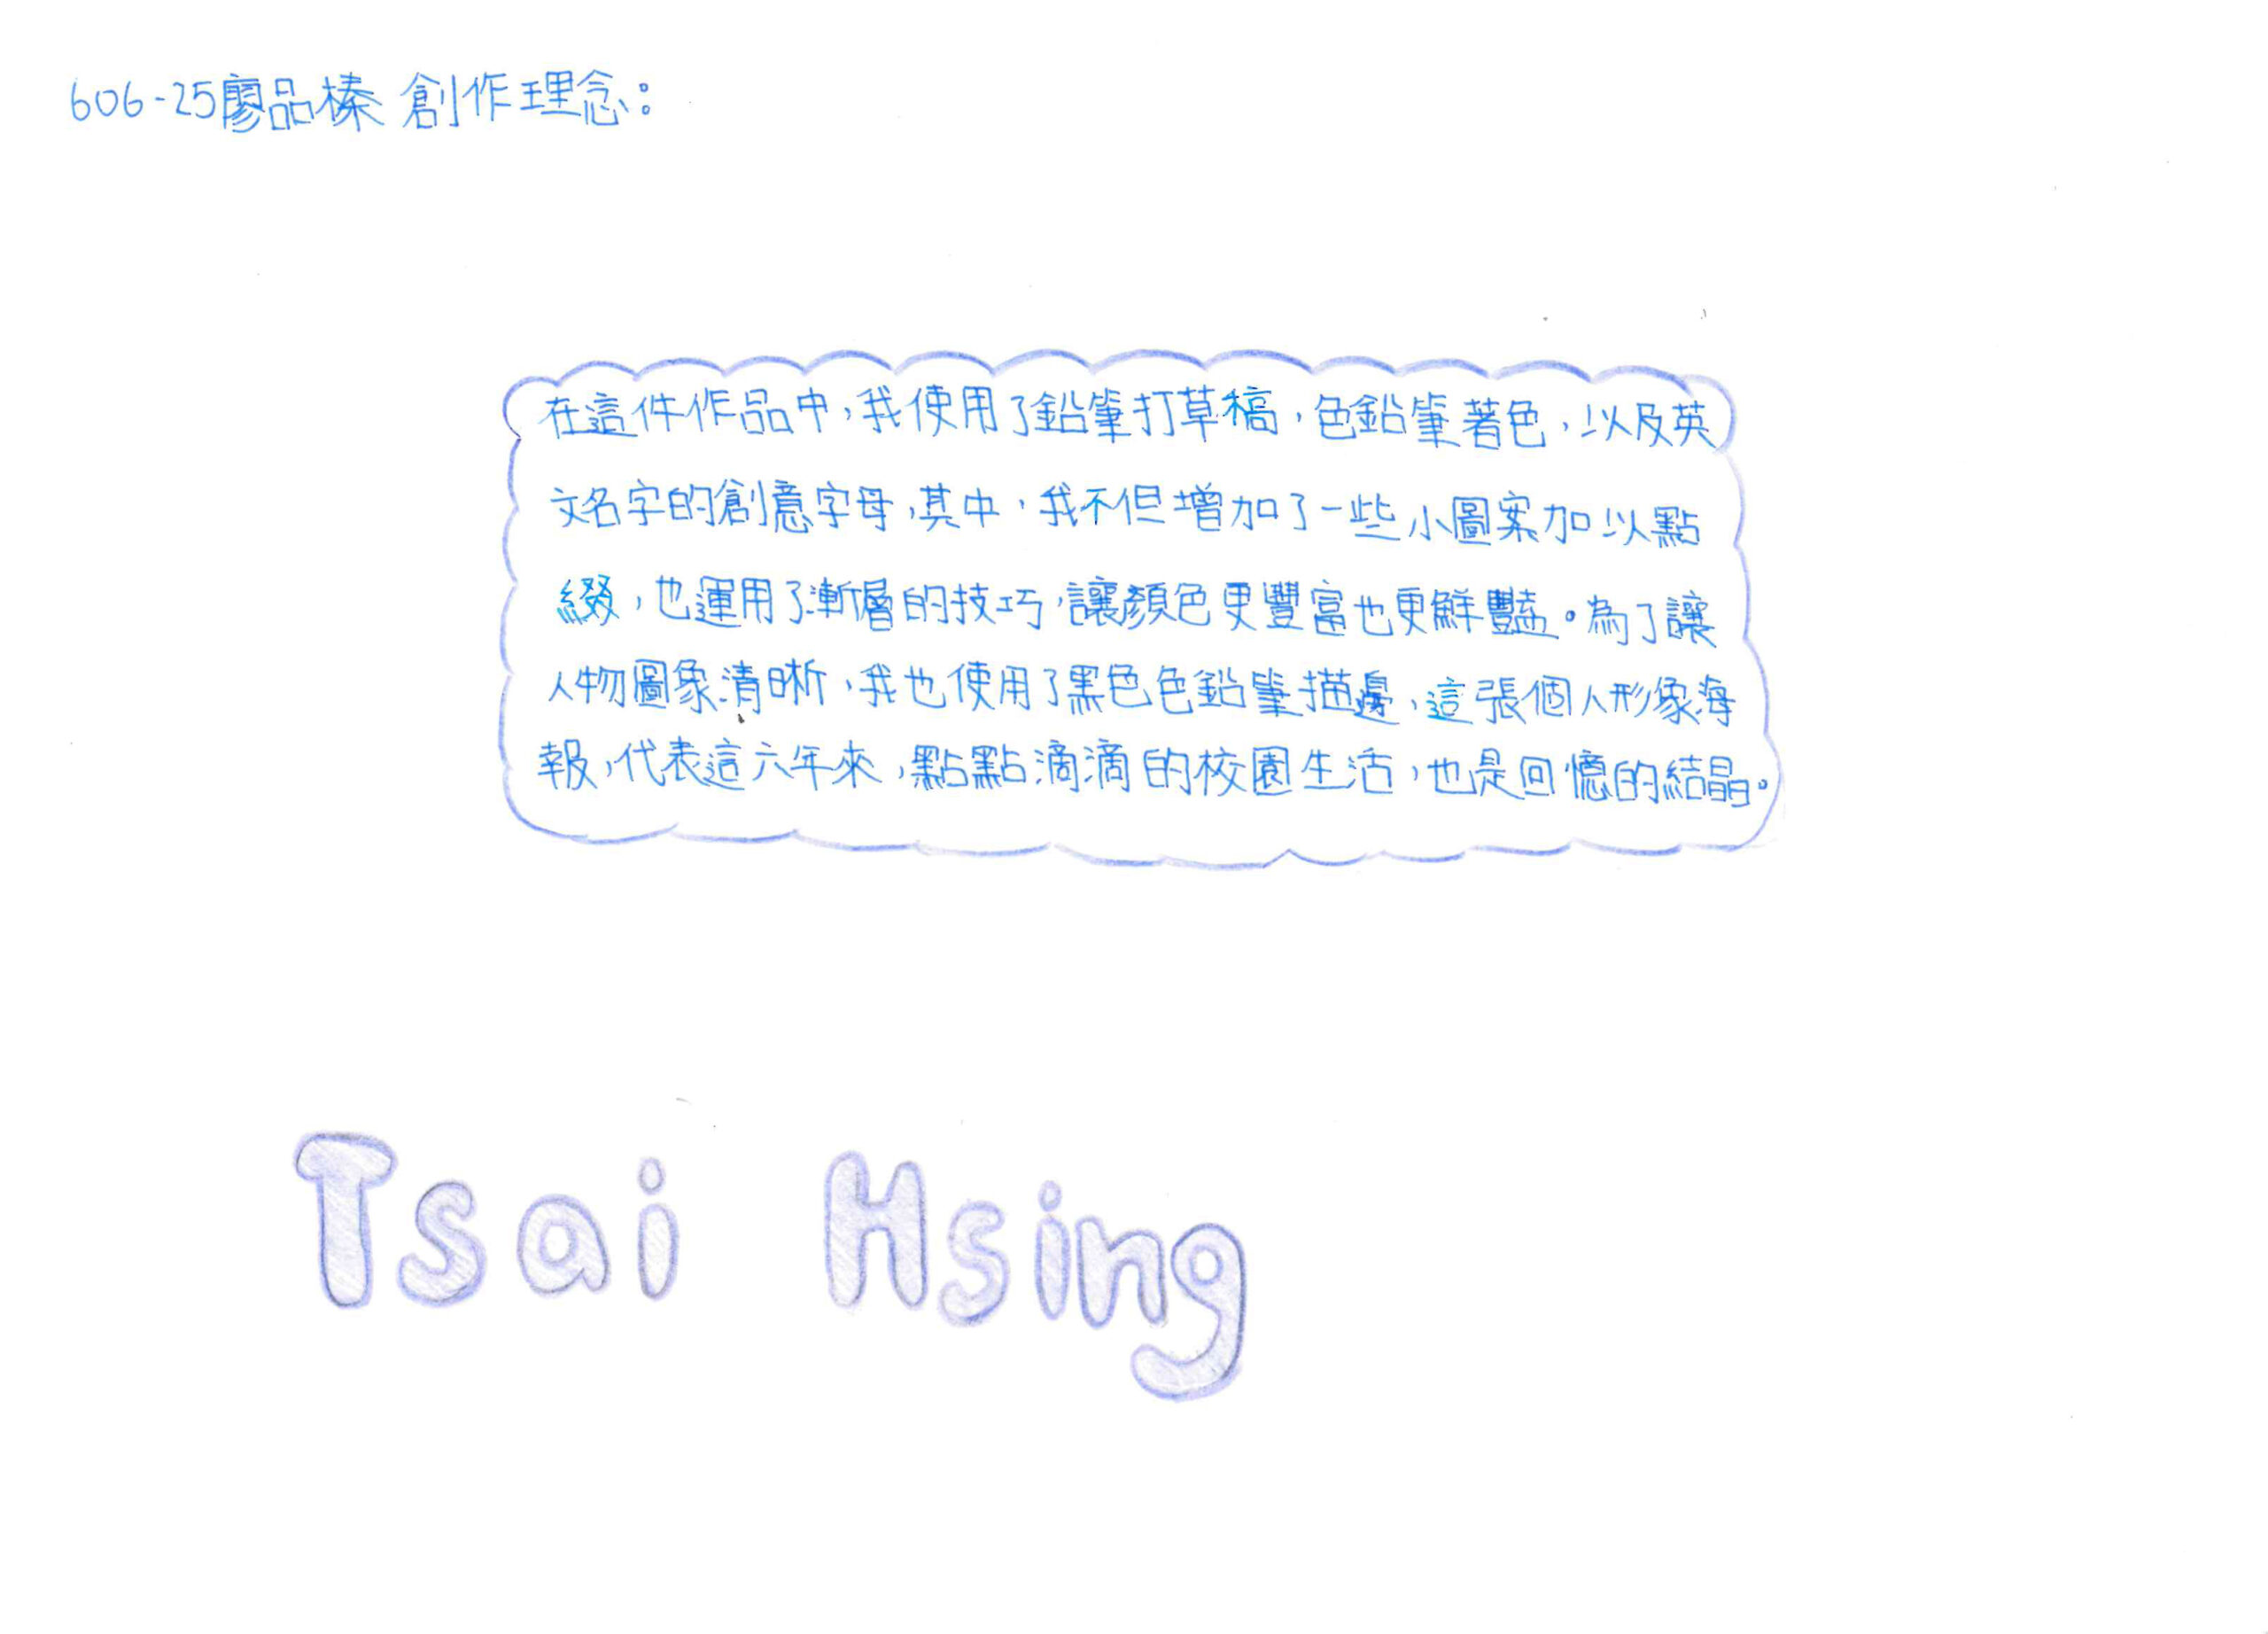 606-25廖品榛 創作理念:
在這件作品中,我使用了鉛筆打草稿,色鉛筆著色,以及英
文名字的創意字母,其中,我不但增加了一些小圖案加以點
綴,也運用了漸層的技巧,讓顏色更豐富也更鮮豔。為了讓
人物圖象清晰,我也使用了黑色色鉛筆描邊,這張個人形象海
報,代表這六年來,點點滴滴的校園生活,也是回憶的結晶。
Tsai Hsing